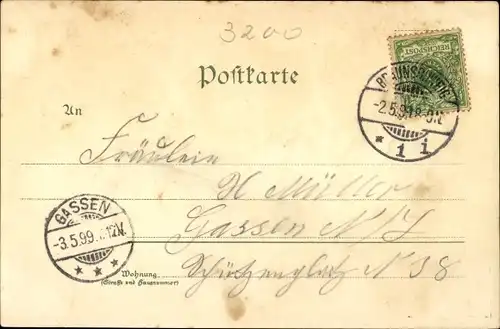 3200
REICHSPOST
Postkarte
BRAUNSCHWEIG
-2.5.99.
* 1 i
An
Fräulein
H Müller
GASSEN
-3.5.99. 12N.
* * *
Gassen N/L
Wohnung
(Straße und Hausnummer)
Schützenplatz N 38